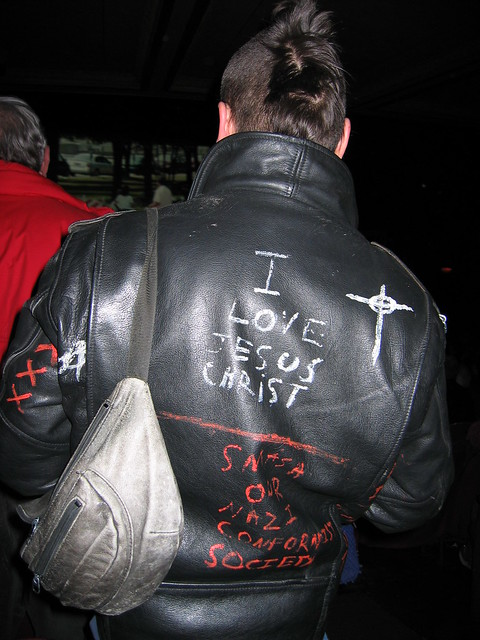 I
LOVE
JESUS
CHRIST
SMASH
OUR
NAZI
CONFORMIST
SOCIETY